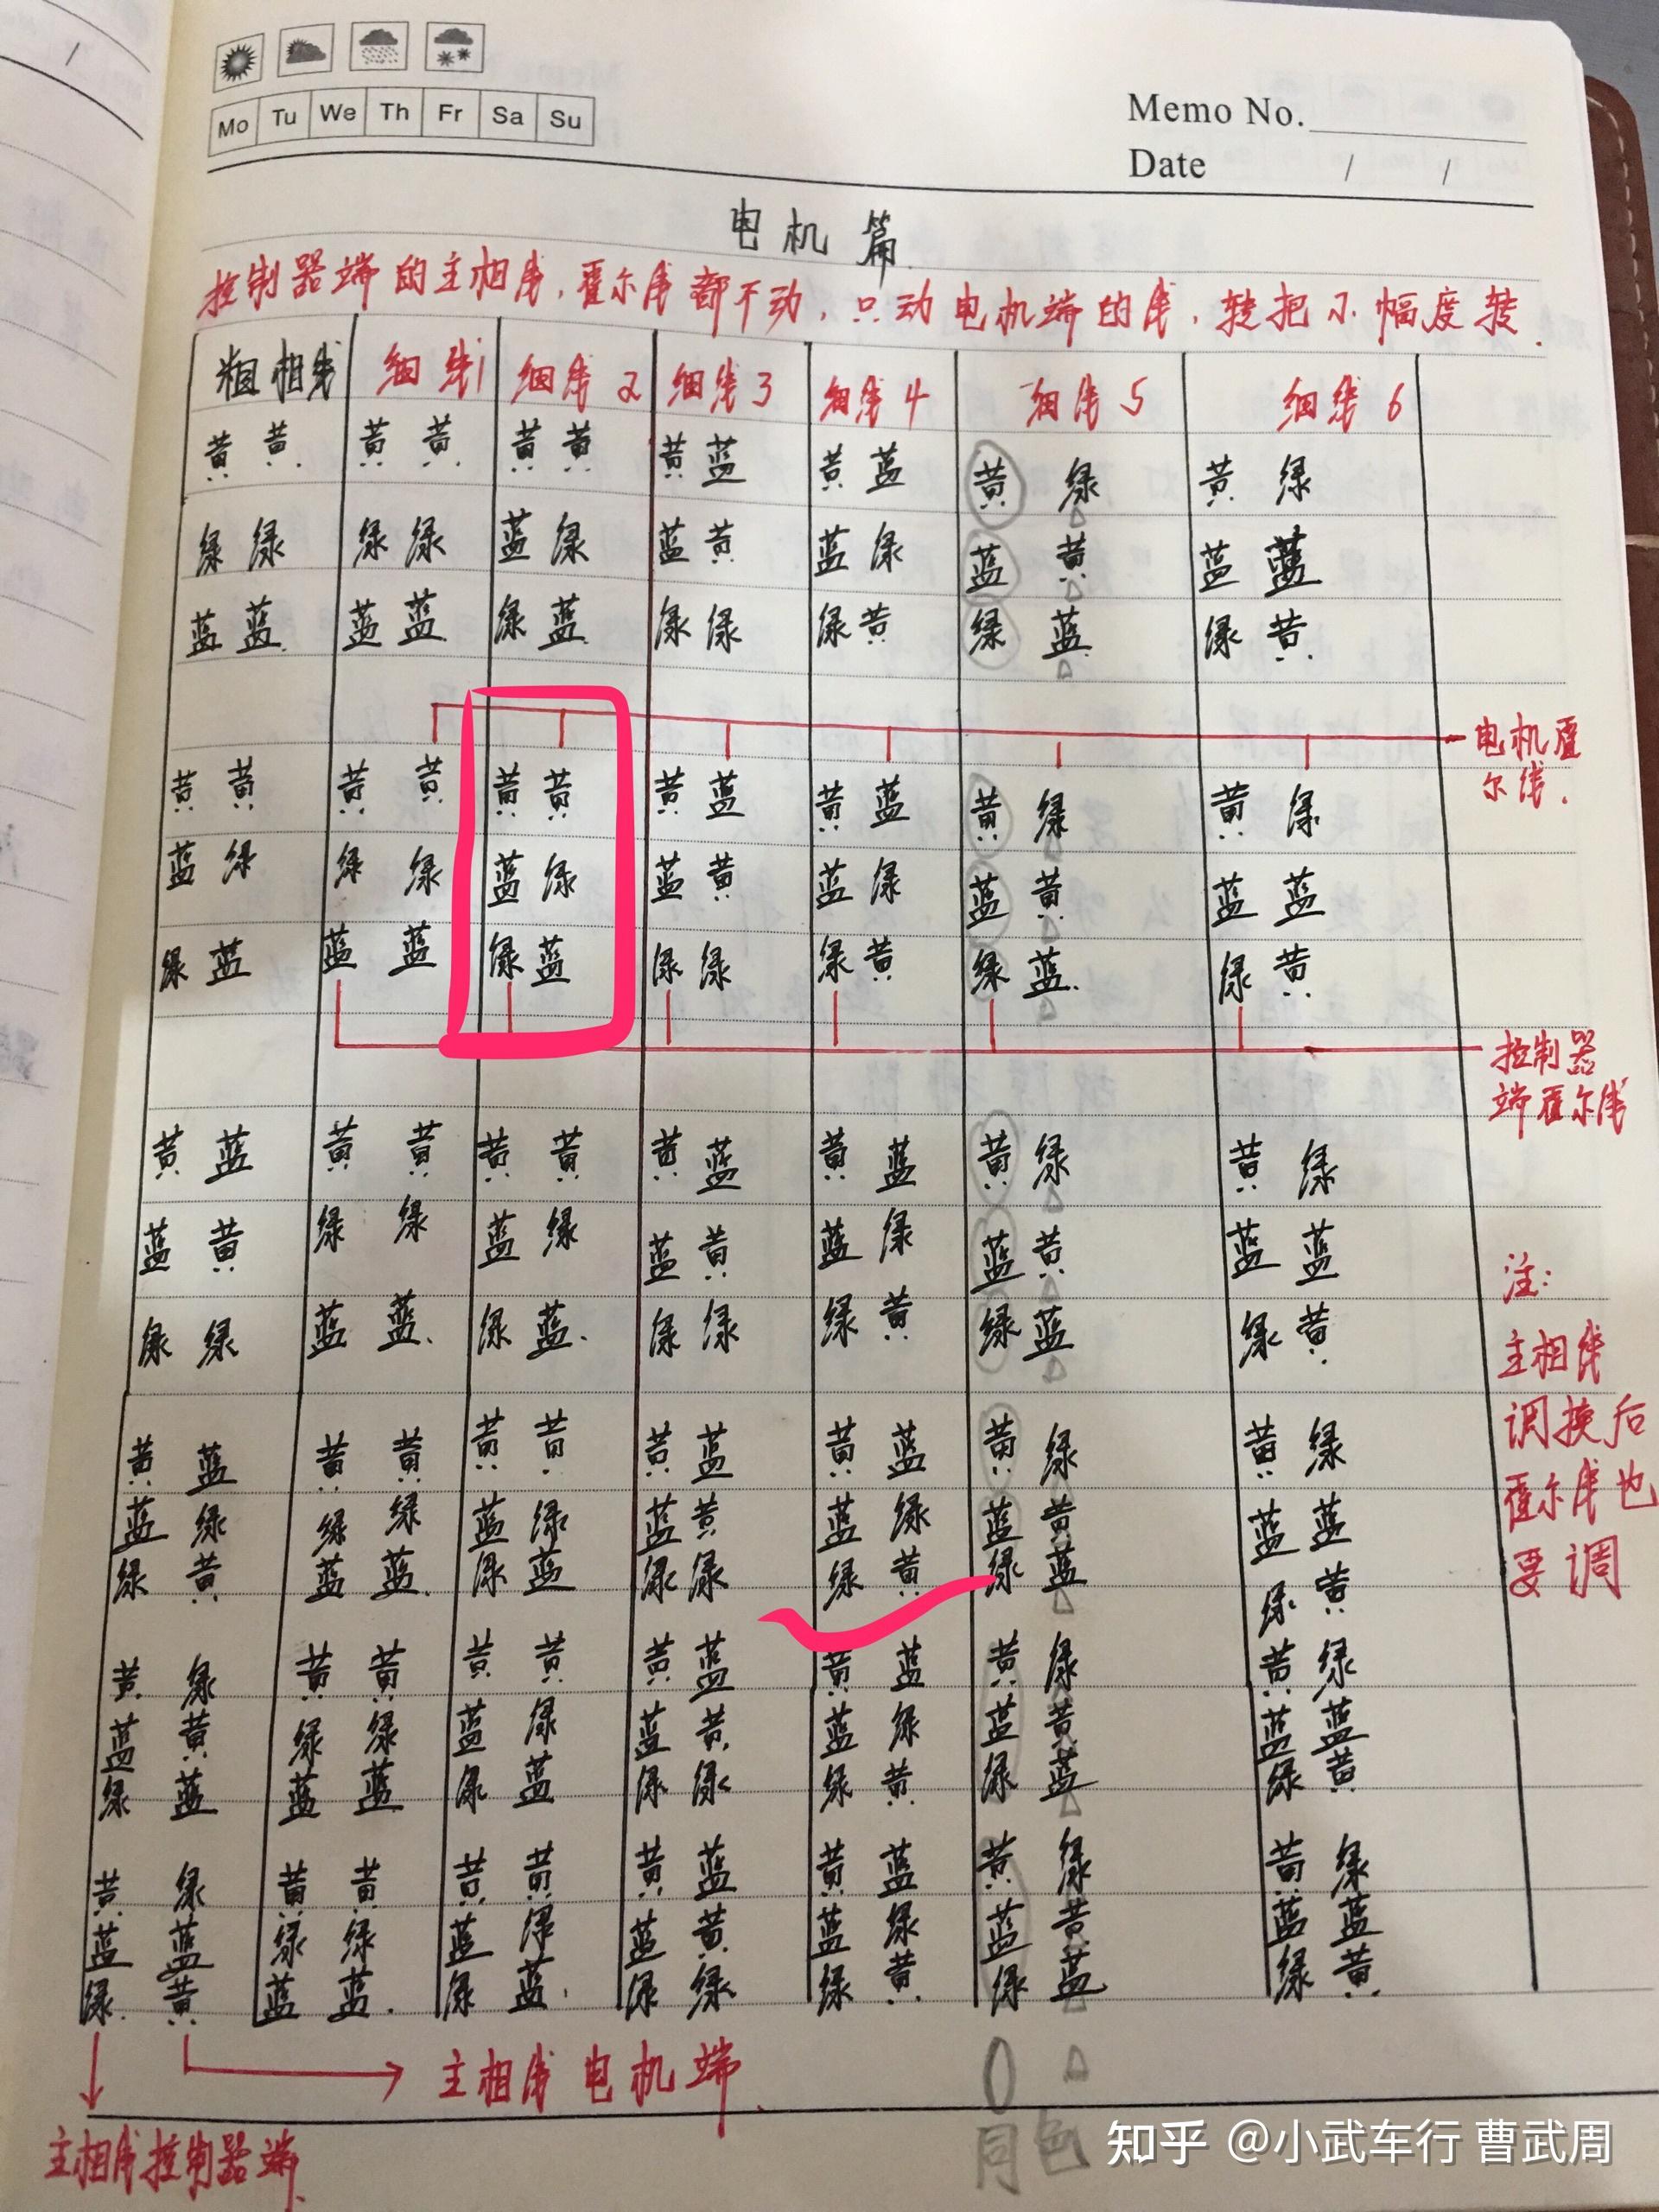 Mo Tu We Th Fr Sa Su
Memo No.
Date / /
电机篇
控制器端的主相线,霍尔线都不动,只动电机端的线,转把小幅度转.
粗相线 细线1 细线2 细线3 细线4 细线5 细线6
黄 黄 黄 黄 黄 黄 黄 蓝 黄 蓝 黄 绿 黄 绿
绿 绿 绿 绿 蓝 绿 蓝 黄 蓝 绿 蓝 黄 蓝 蓝
蓝 蓝 蓝 蓝 绿 蓝 绿 绿 绿 黄 绿 蓝 绿 黄
电机霍
尔线.
黄 黄 黄 黄 黄 黄 黄 蓝 黄 蓝 黄 绿 黄 绿
蓝 绿 绿 绿 蓝 绿 蓝 黄 蓝 绿 蓝 黄 蓝 蓝
绿 蓝 蓝 蓝 绿 蓝 绿 绿 绿 黄 绿 蓝 绿 黄
控制器
端霍尔线
黄 蓝 黄 黄 黄 黄 黄 蓝 黄 蓝 黄 绿 黄 绿
蓝 黄 绿 绿 蓝 绿 蓝 黄 蓝 绿 蓝 黄 蓝 蓝
绿 绿 蓝 蓝 绿 蓝 绿 绿 绿 黄 绿 蓝 绿 黄
注:
主相线
调换后
霍尔线也
要调
黄 蓝 黄 黄 黄 黄 黄 蓝 黄 蓝 黄 绿 黄 绿
蓝 绿 绿 绿 蓝 绿 蓝 黄 蓝 绿 蓝 黄 蓝 蓝
绿 黄 蓝 蓝 绿 蓝 绿 绿 绿 黄 绿 蓝 绿 黄
黄 绿 黄 黄 黄 黄 黄 蓝 黄 蓝 黄 绿 黄 绿
蓝 黄 绿 绿 蓝 绿 蓝 黄 蓝 绿 蓝 黄 蓝 蓝
绿 蓝 蓝 蓝 绿 蓝 绿 绿 绿 黄 绿 蓝 绿 黄
黄 绿 黄 黄 黄 黄 黄 蓝 黄 蓝 黄 绿 黄 绿
蓝 蓝 绿 绿 蓝 绿 蓝 黄 蓝 绿 蓝 黄 蓝 蓝
绿 黄 蓝 蓝 绿 蓝 绿 绿 绿 黄 绿 蓝 绿 黄
主相线电机端
主相线控制器端
同色
知乎 @小武车行 曹武周